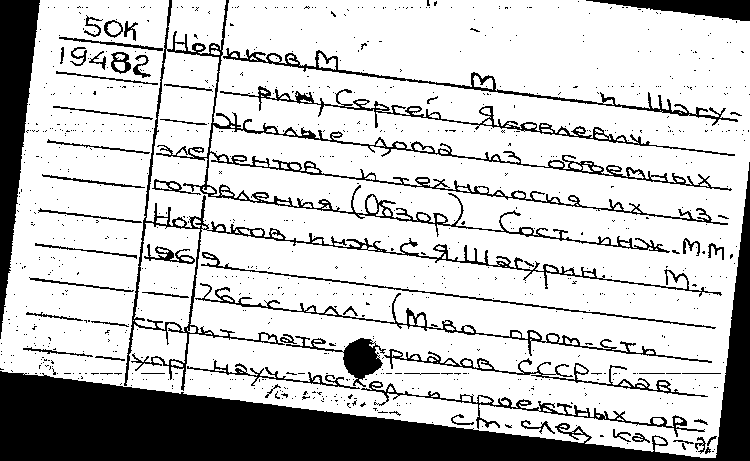 50К
19482
Новиков, М М и Шагу-
рин, Сергей Яковлевич.
Жилые дома из объемных
элементов и технология их из-
готовления. (Обзор). Сост. инж. М.М.
Новиков, инж. С.Я. Шагурин. М.,
1969.
76с. с илл. (М-во пром-сти
строит мате- риалов СССР Глав.
упр науч-исслед. и проектных ор-
см. след. карт